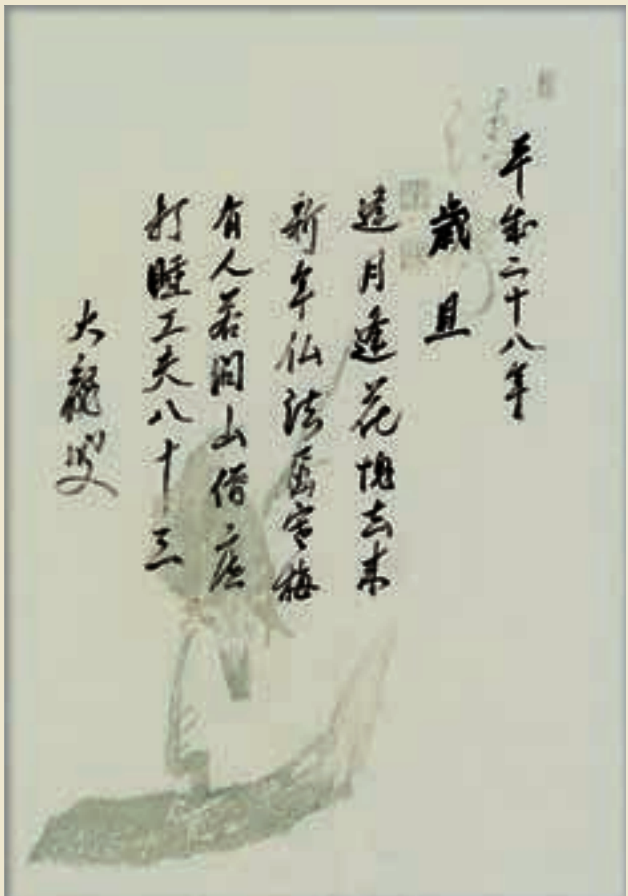 平成二十八年
歳旦
月逢花愧去来
新年仏法寒梅
有人若問山僧底
打睡工夫八十三
大龍叟